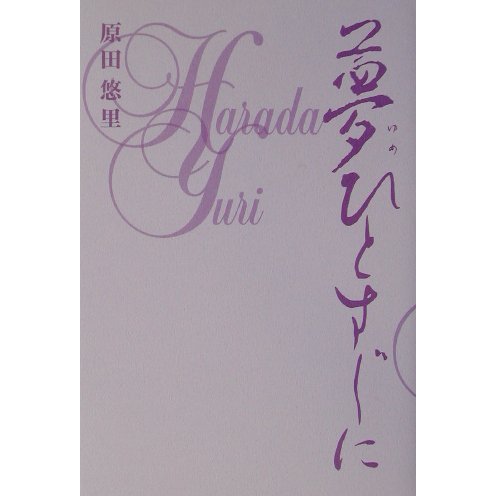 夢ひとすじに
いめ
Harada
Yuri
原田悠里